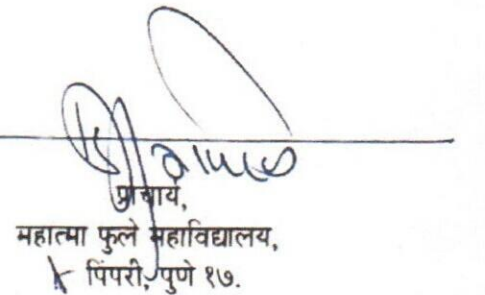 प्राचार्य,
महात्मा फुले महाविद्यालय,
पिंपरी, पुणे १७.